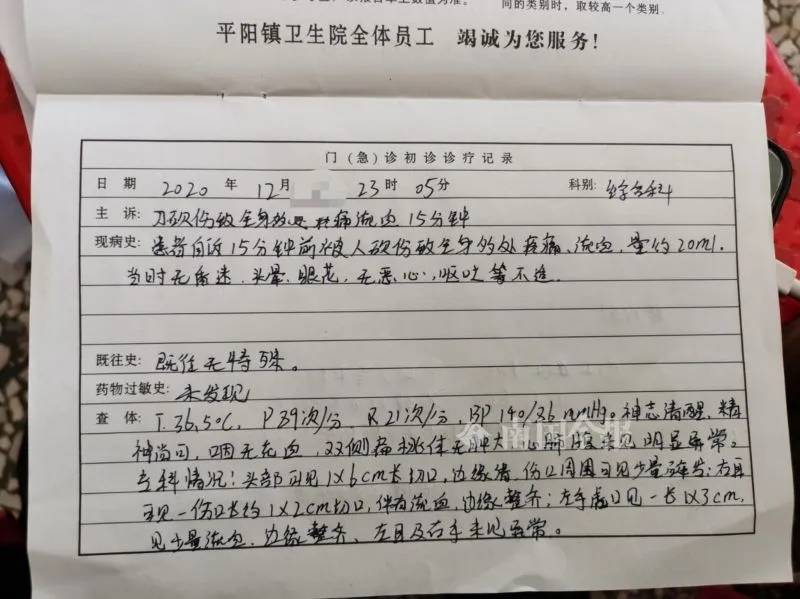 间的类别时，取较高一个类别
平阳镇卫生院全体员工 竭诚为您服务！
门（急）诊初诊诊疗记录
日期 2020 年 12月 23时 05分 科别: 综合科
主诉: 刀砍伤致全身多处疼痛流血15分钟
现病史: 患者自诉15分钟前被人砍伤致全身多处疼痛、流血,量约20ml.
当时无昏迷、头晕、眼花,无恶心、呕吐等不适.
既往史: 既往无特殊。
药物过敏史: 未发现
查体: T.36.5℃, P 89次/分, R 21次/分, BP 140/86mmHg。神志清醒,精
神尚可,咽无充血,双侧扁桃体无肿大,心肺腹未见明显异常。
专科情况:头部可见1×6cm长切口,边缘清,伤口周围可见少量碎发;右耳
可见一伤口长约1×2cm切口,伴有流血,边缘整齐;左手虎口见一长1×3cm,
见少量流血、边缘整齐、左耳及右手未见异常。
南国今报